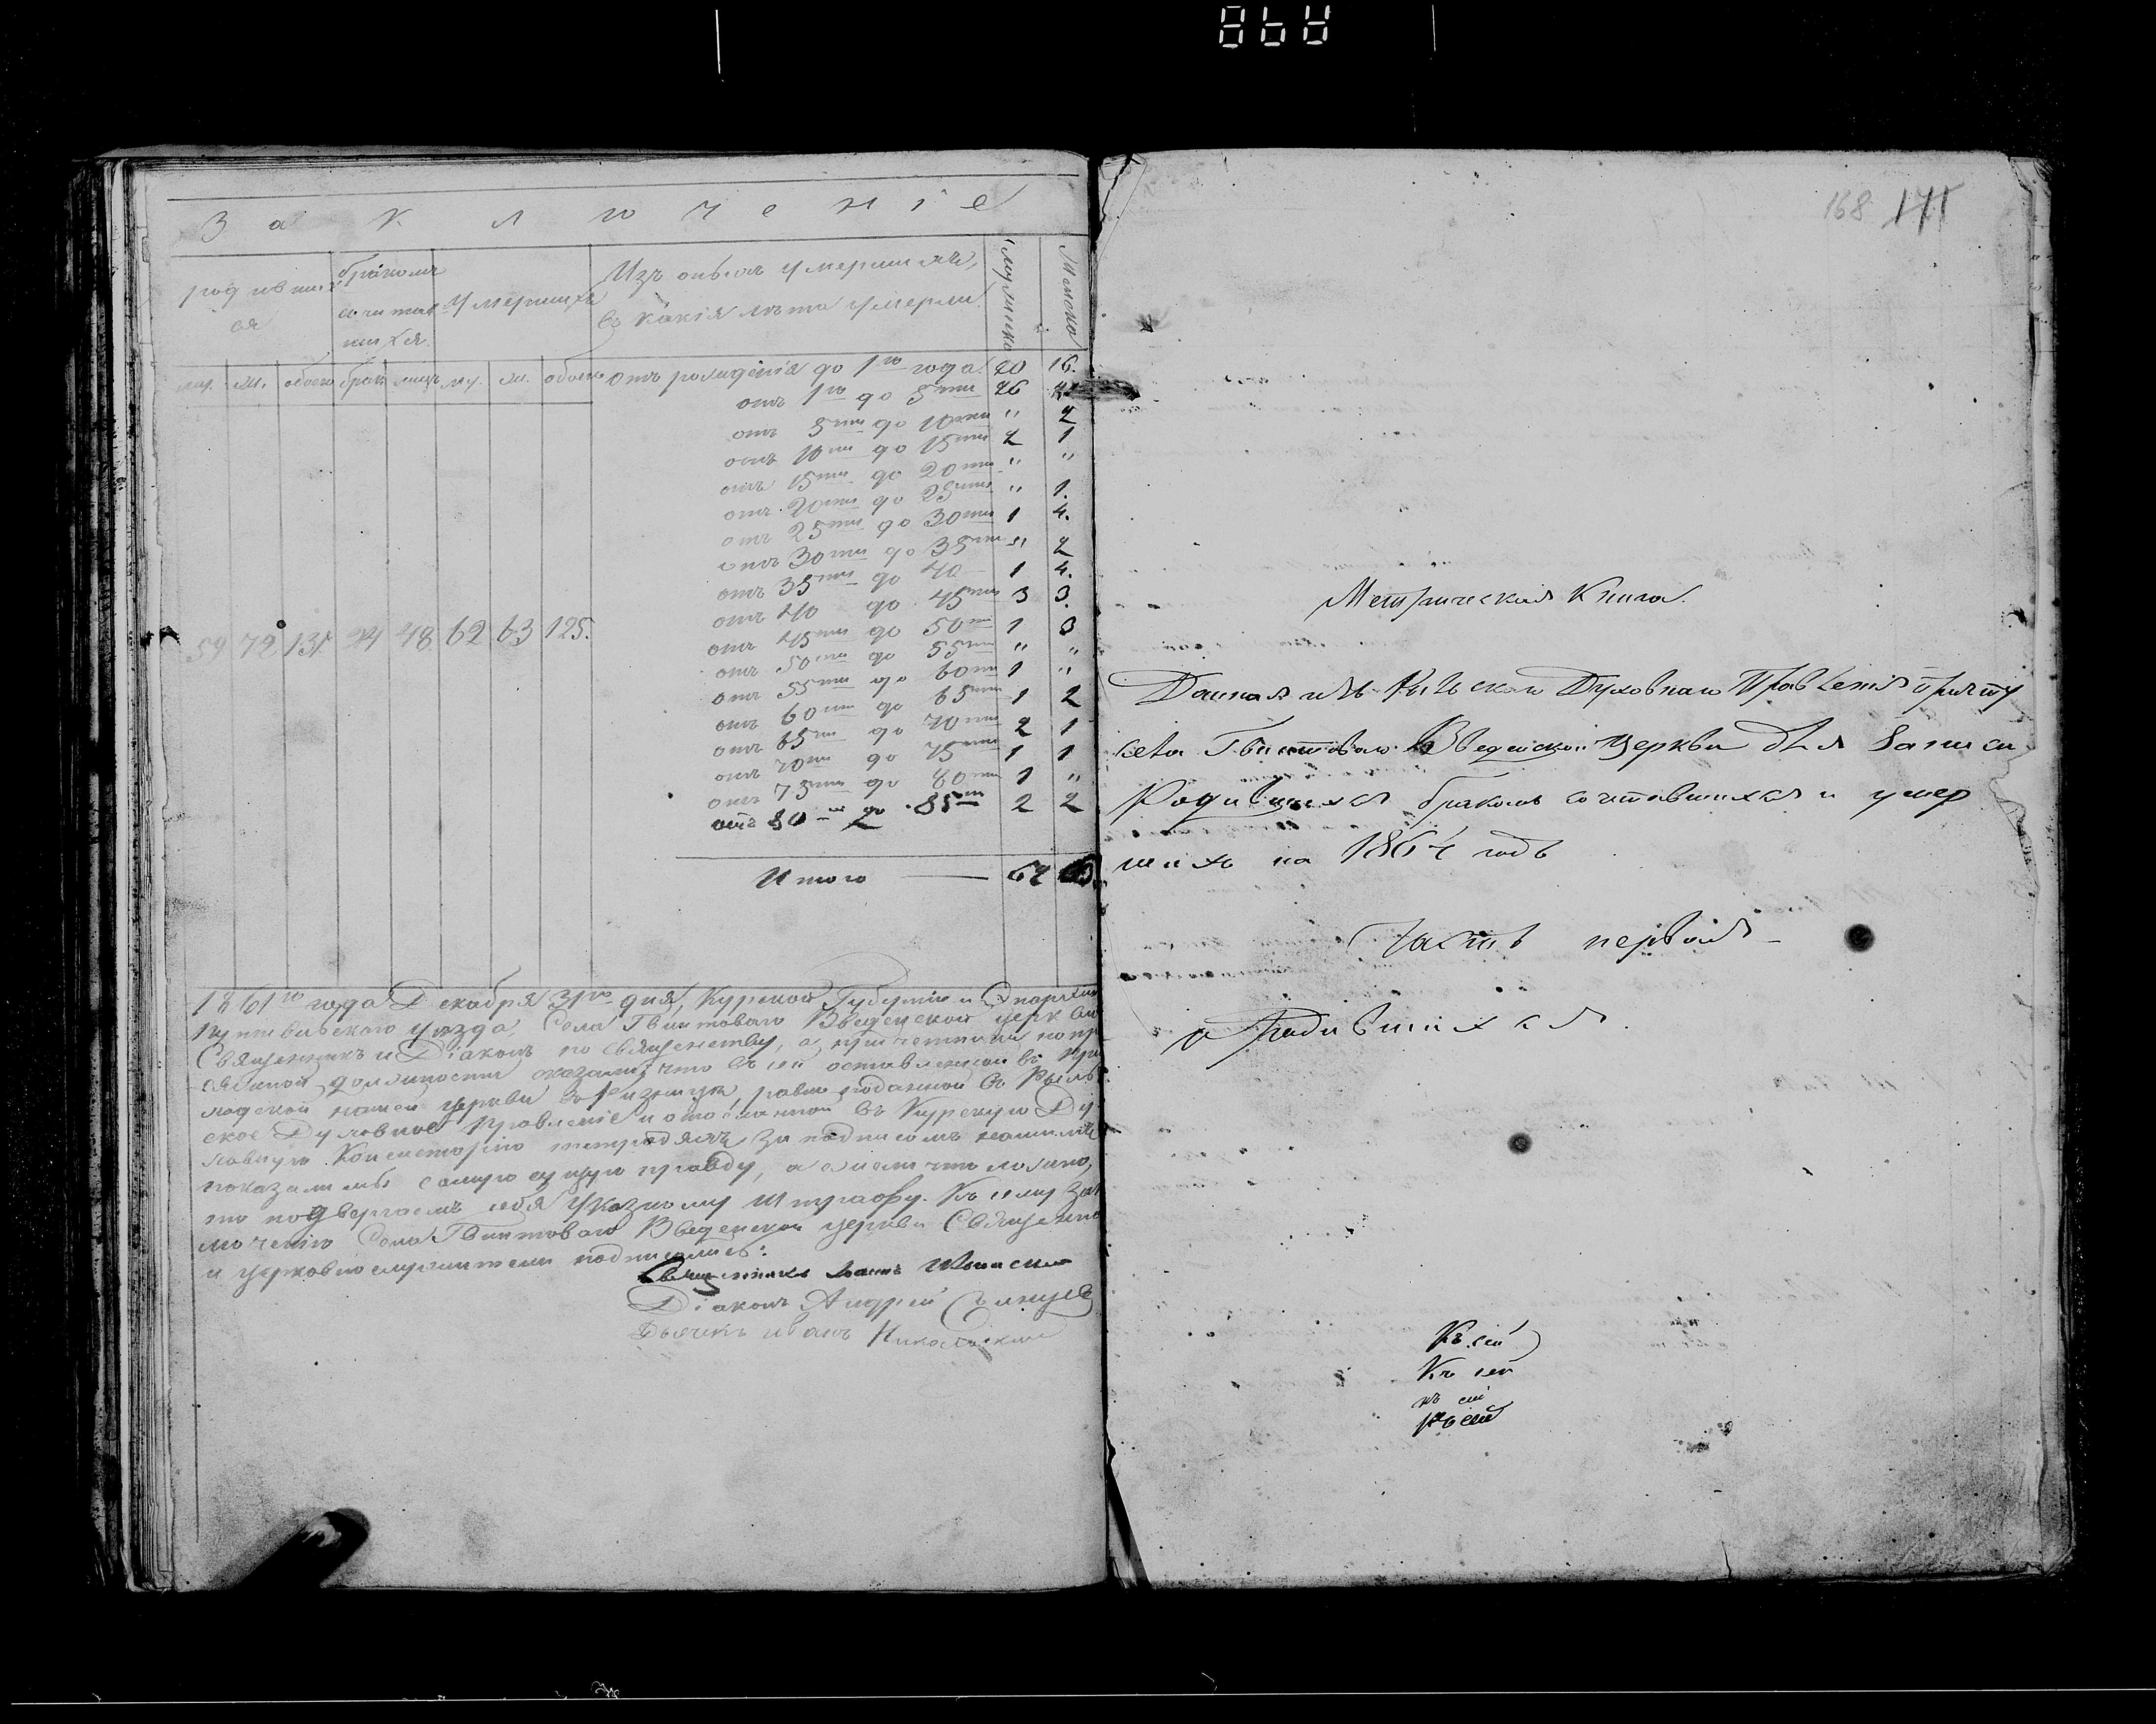 Заключеніе
родившихся
бракомъ сочитавшихся
умершихъ
Изъ оныхъ умершихъ,
въ какія лѣта умерли.
Мужеско
Женско
муж. жен. обоего браков лицъ му. ж. обоего
отъ рожденія до 1го года. 20 16.
отъ 1го до 5ти 26
отъ 5ти до 10ти " 2
отъ 10ти до 15ти 2 1
отъ 15ти до 20ти " "
отъ 20ти до 25ти " 1.
отъ 25ти до 30ти 1 4.
отъ 30ти до 35ти " 2
отъ 35ти до 40 1 4.
отъ 40 до 45ти 3 3.
отъ 45ти до 50ти 1 3
отъ 50ти до 55ти " "
отъ 55ти до 60ти 1 "
отъ 60ти до 65ти 1 2
отъ 65ти до 70ти 2 1
отъ 70ти до 75ти 1 1
отъ 75ти до 80ти 1 "
отъ 80ти до 85ти 2 2
59 72 131. 24 48 62 63 125.
Итого 62 63.
1861го года Декабря 31го дня, Курской Губерніи и Епархіи
Путивльскаго уѣзда, Села Гвинтоваго Введенской церкви
Священникъ и Діаконъ по священству, а причетники по при
сяжной должности показали, что въ сей оставленной въ при
ходской нашей церкви въ ризницѣ, равно поданной въ Рыль
ское Духовное Правленіе и отосланной въ Курскую Ду
ховную Консисторію тетрадяхъ за подписомъ нашимъ
показали мы самую сущую правду, а ежели что ложно,
то подвергаемъ себя указному штрафу. Къ сему зак
люченію Села Гвинтоваго Введенской церкви Священно
и церковнослужители подписались:
Священникъ
Діаконъ Андрей
Дьячекъ Иванъ Никольскій
168 171
Метрическая Книга.
Данная изъ Рыльскаго Духовнаго Правленія причту
села Гвинтоваго Введенской церкви для записи
Родившихся бракомъ сочетавшихся и умер
шихъ на 1862 годъ
Часть первая
о Родившихся.
Къ сей
Къ сей
къ сей
къ сей